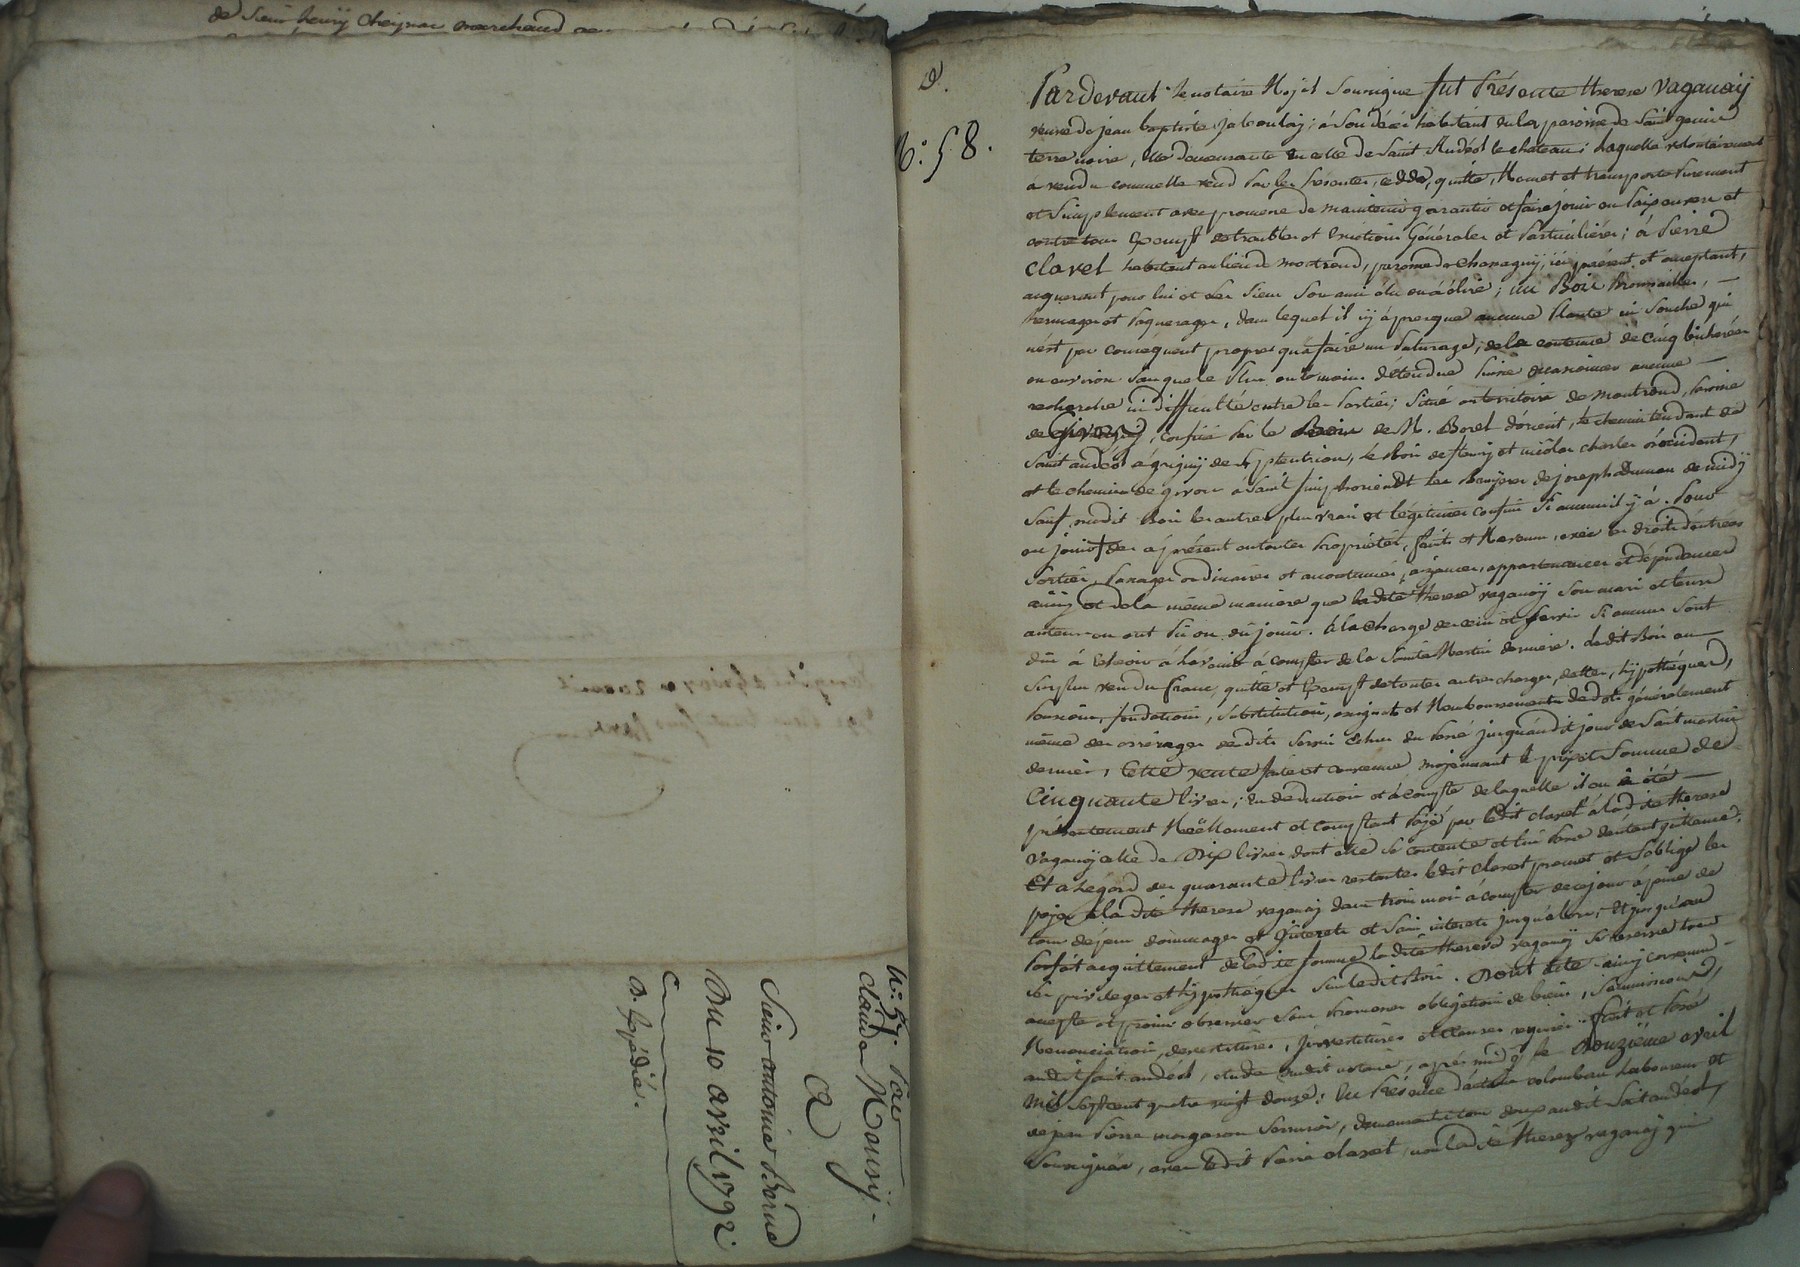 de Sieur henry Cheynac marchand
N.° 57. Par
Claude Mousÿ.
a
Sieur antoine Bérne
Du 10 avril 1792.
D. Expédié.
D.
N.° 58.
Pardevant le notaire Royal Soussigné fut Présente therese Vaganaÿ
veuve de jean baptiste jaboulay, à son décès habitant en la paroisse de Saint genis
terre noire, elle demeurante en celle de Saint Andéol le chateau; laquelle volontairement
à vendu comme elle vend par les présentes, cedde, quitte, Remet et transporte purement
et Simplement avec promesse de maintenir garantir et faire jouir en paix envers et
contre tous Exempt de troubles et Evictions Générales et Particulières; à Pierre
Clavel habitant au lieu de montrond, paroisse de Chassagny, ici present et acceptant,
acquerant pour lui et les Siens Son ami élu ou à élire; un Bois Broussailles,
hermages et paquerages, dans lequel il ÿ à presque aucune Plante ni Souche qui
n'est par consequent propre qu'à faire un Paturage, de la contenue de Cinq bicherées
ou environ sans que le Plus ou le moins d'étendue puisse occasionner aucune
recherche ni difficulté entre les Parties; Situé au territoire de montrond, paroisse
de, confiné par le Bois de M. Borel d'orient, le chemin tendant de
Saint andéol à grigny de Septentrion, le Bois de fleury et nicolas charles d'occident,
et le chemin de givors à Saint Simphorien et les Bruÿeres de joseph de midÿ
Sauf, dudit Bois les autres plus vrais et légitimes confins Si aucuns il ÿ à. Pour
en jouir des à présent en toutes Propriétés, fruits et Revenus, avec les droits d'entrées
Sorties, Passages ordinaires et accoutumés, aizances, appartenances et dépendances
ainsÿ et de la même maniere que ladite therese vaganaÿ Son mari et leurs
auteurs en ont Pu ou dû jouir. à la charge de cens et servis Si aucuns sont
dûs à Echoir à l'avenir à compter de la Saint Martin derniere. Ledit Bois au
Surplus vendu franc, quitte et Exempt de toutes autres charges, dettes, hÿpothéques,
Pensions, fondations, Substitutions, assignats et Remboursements de dots généralement
même des arrérages desdits servis Echus du Passé jusqu'audit jour de Saint martin
dernier, Cette vente faite et convenue moÿennant le prix et Somme de
Cinquante livres; en déduction et à compte de laquelle il en à été
présentement Réellement et Comptant Payé par ledit clavel à ladite therese
vaganaÿ celle de Dix livres dont elle se contente et lui Passe d'autant quittance.
Et a l'egard des quarante livres restantes ledit clavel promet et S'oblige les
payer à ladite therese vaganaÿ dans trois mois à compter de ce jour à peine de
tous dépens dommages et Intérets et Sans intérets jusqu'alors, Et jusqu'au
Parfait acquittement de ladite Somme ladite therese vaganaÿ Se reserve tous
les privileges et hÿpothéques Sur ledit Bois. Dont acte ainsÿ convenu
accepté et promis observer Sous Promesses obligations de biens, Soumissions,
Renonciations, devestitures, investitures et clauses requises. fait et Passé
audit Saint andéol, étude dudit notaire, après midÿ le Douzième avril
mil Septcent quatre vingt douze; En Présence d'antoine colombier Laboureur et
de jean Pierre margaron Serrurier, demeurants tous deux audit Saint andéol,
Soussignés, avec ledit Pierre clavel, non ladite therese vaganaÿ qui